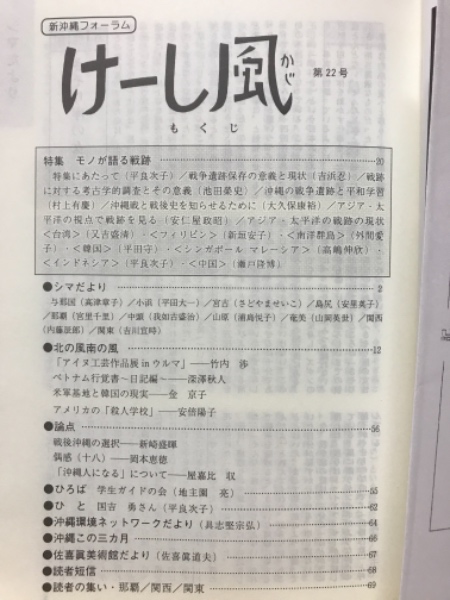 新沖縄フォーラム
けーし風
かじ
第22号
もくじ
特集 モノが語る戦跡 20
特集にあたって（平良次子）／戦争遺跡保存の意義と現状（吉浜忍）／戦跡
に対する考古学的調査とその意義（池田榮史）／沖縄の戦争遺跡と平和学習
（村上有慶）／沖縄戦と戦後史を知らせるために（大久保康裕）／アジア・太
平洋の視点で戦跡を見る（安仁屋政昭）／アジア・太平洋の戦跡の現状
＜台湾＞（又吉盛清）・＜フィリピン＞（新垣安子）・＜南洋群島＞（外間愛
子）・＜韓国＞（平田守）・＜シンガポール マレーシア＞（高嶋伸欣）・
＜インドネシア＞（平良次子）・＜中国＞（瀬戸隆博）
●シマだより 2
与那国（高津章子）／小浜（平田大一）／宮古（さどやませいこ）／島尻（安里英子）
／那覇（宮里千里）／中頭（我如古盛治）／山原（浦島悦子）／奄美（山岡英世）／関西
（内藤辰郎）／関東（吉川宣時）
●北の風南の風 12
「アイヌ工芸作品展 in ウルマ」――竹内 渉
ベトナム行覚書～日記編～――深澤秋人
米軍基地と韓国の現実――金 京子
アメリカの「殺人学校」――安倍陽子
●論点 56
戦後沖縄の選択――新崎盛暉
偶感（十八）――岡本恵徳
「沖縄人になる」について――屋嘉比 収
●ひろば 学生ガイドの会（地主園 亮） 55
●ひと 国吉 勇さん（平良次子） 62
●沖縄環境ネットワークだより（具志堅宗弘） 64
●沖縄この三カ月 66
●佐喜眞美術館だより（佐喜眞道夫） 67
●読者短信 68
●読者の集い・那覇／関西／関東 69